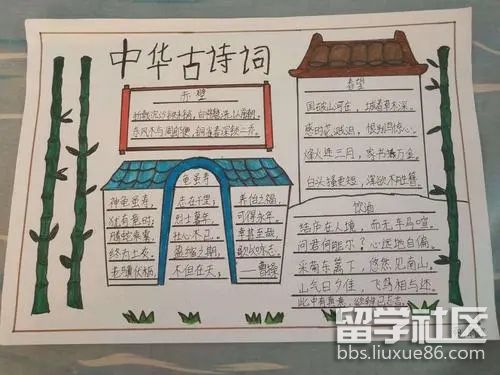 中华古诗词
赤壁
折戟沉沙铁未销，自将磨洗认前朝。
东风不与周郎便，铜雀春深锁二乔。
龟虽寿
神龟虽寿，
犹有竟时；
腾蛇乘雾，
终为土灰。
老骥伏枥，
志在千里；
烈士暮年，
壮心不已。
盈缩之期，
不但在天；
养怡之福，
可得永年。
幸甚至哉，
歌以咏志。
——曹操
春望
国破山河在，城春草木深。
感时花溅泪，恨别鸟惊心。
烽火连三月，家书抵万金。
白头搔更短，浑欲不胜簪。
饮酒
结庐在人境，而无车马喧。
问君何能尔？心远地自偏。
采菊东篱下，悠然见南山。
山气日夕佳，飞鸟相与还。
此中有真意，欲辨已忘言。
留学社区
bbs.liuxue86.com